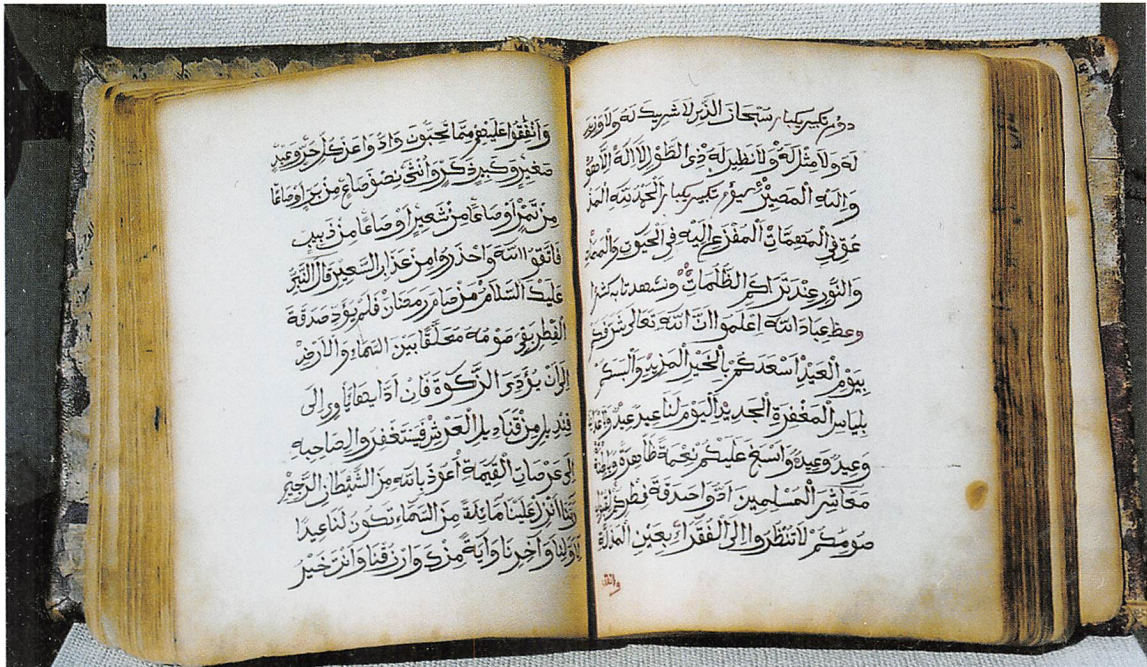 دوم تكبير بكيار سبحان الذي لا شريك له ولا وزير
له ولا مثل له ولا نظير له ذي الطول لا اله الا هو
واليه المصير سيوم تكبير بكيار الحمد لله المذ
عو في المهمات المفزع اليه في الحيوت والممات
والنور عند تراكم الظلمات ونشهد تا به كثيرا
وعظ عباد الله اعلموا ان الله تعالى شرفكم
بيوم العيد اسعدكم بالخير المزيد والبسكم
بلباس المغفرة الجديد اليوم لنا عيد عيد
وعيد وعيد واسبغ عليكم نعمة ظاهرة وباطنة
معاشر المسلمين ادوا صدقة فطركم
صومكم لا تنظروا الى الفقراء بعين المذلة
وانفقوا
وانفقوا عليهم مما تحبون وادوا عن كل حر وعبد
صغير وكبير ذكر وانثى نصف صاع من بر او صاعا
من تمر او صاعا من شعير او صاعا من ذبيب
فاتقوا الله واحذروا من عذاب السعير قال النبي
عليه السلام من صام رمضان فلم يؤد صدقة
الفطر بقي صومه معلقا بين السماء والارض
الى ان يؤدى الزكوة فان اداها اوى الى
قنديل من قناديل العرش فيستغفر لصاحبه
الى عرصات القيمة اعوذ بالله من الشيطان الرجيم
ربنا انزل علينا مائدة من السماء تكون لنا عيدا
لاولنا وآخرنا وآية منك وارزقنا وانت خير